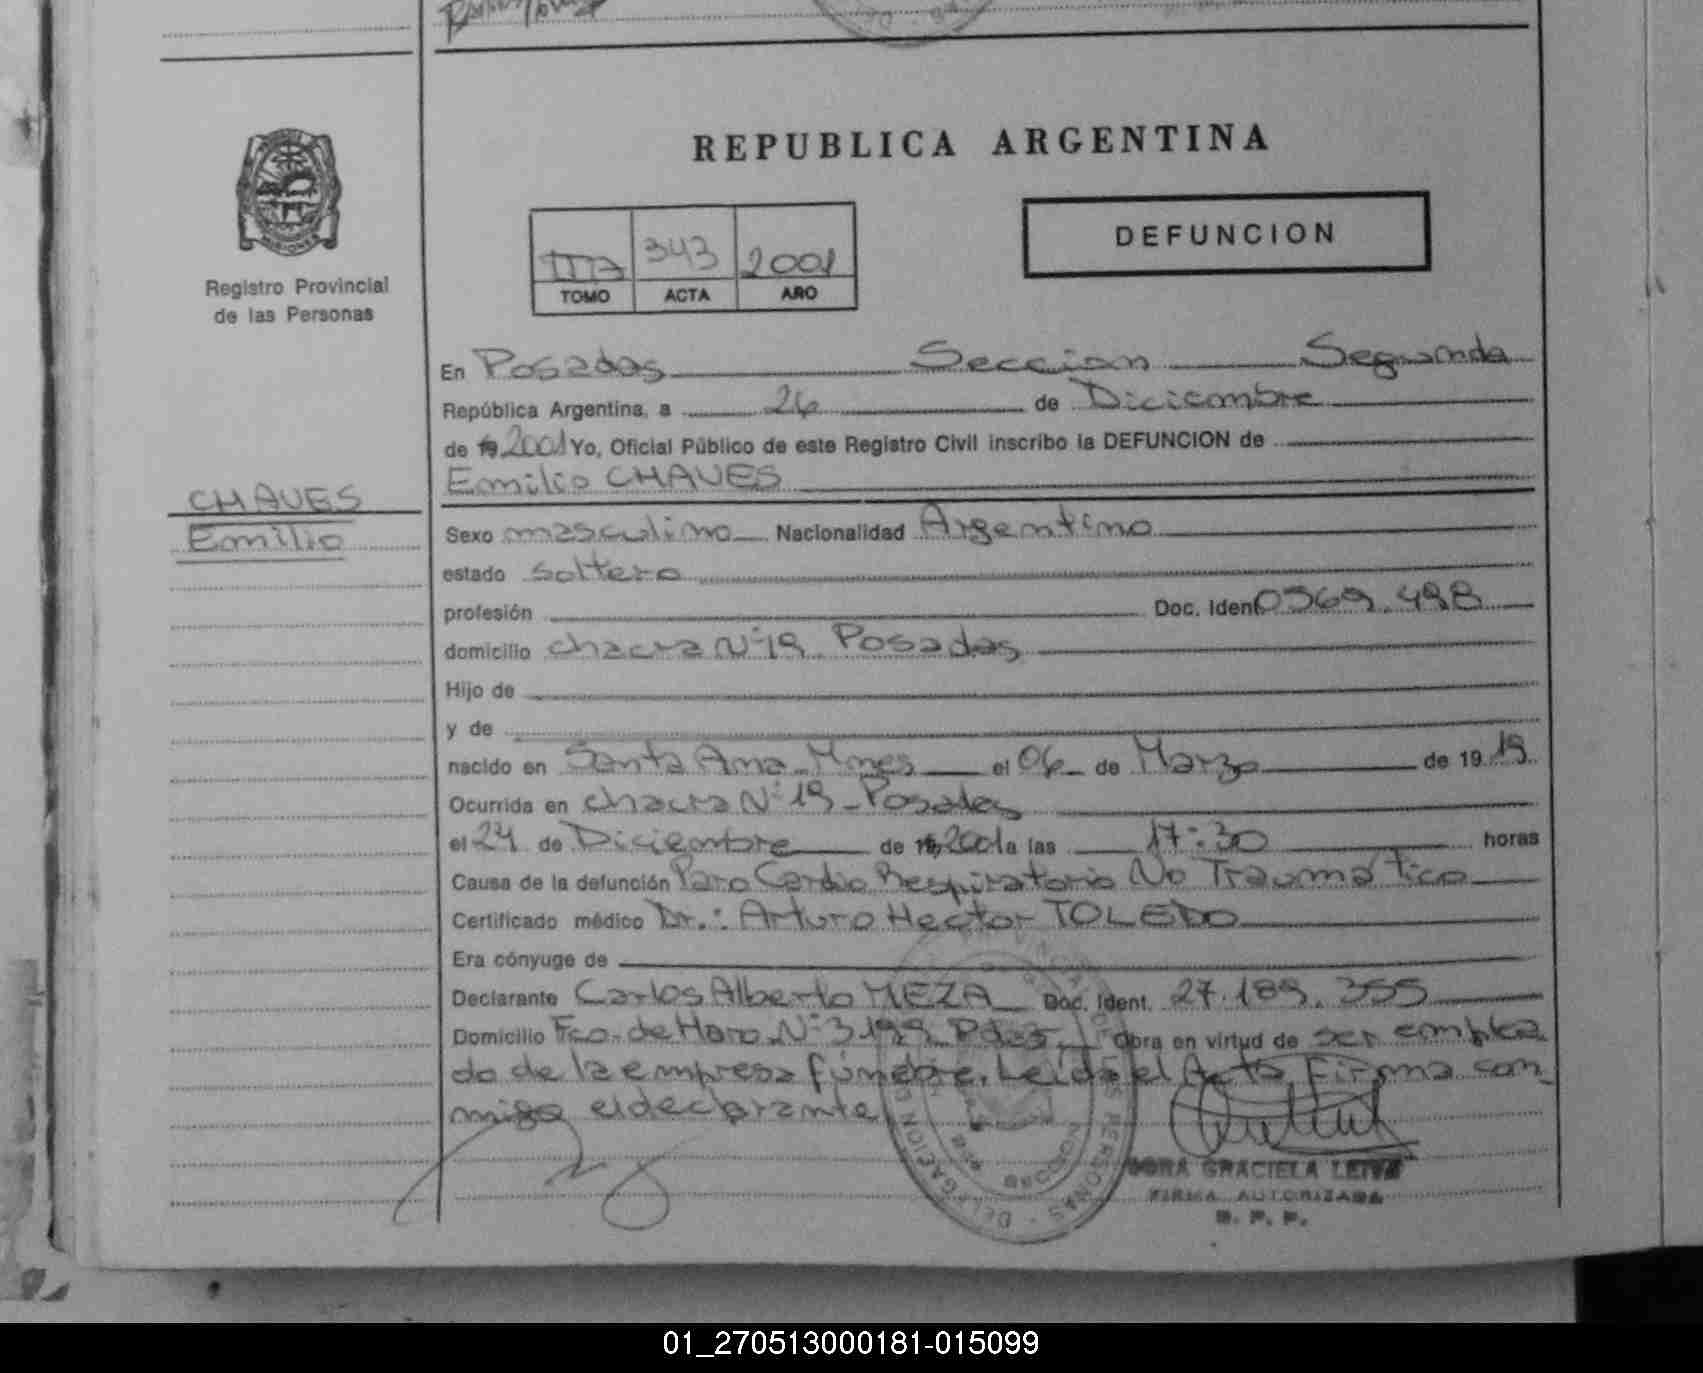 REPUBLICA ARGENTINA
MISIONES
Registro Provincial
de las Personas
343 2001
TOMO ACTA AÑO
DEFUNCION
En Posadas Seccion Segunda
República Argentina, a 26 de Diciembre
de 19 2001 Yo, Oficial Público de este Registro Civil inscribo la DEFUNCION de
Emilio CHAVES
CHAVES
Emilio
Sexo masculino Nacionalidad Argentino
estado soltero
profesión Doc. Ident. 0569.498
domicilio chacra N° 19 Posadas
Hijo de
y de
nacido en Santa Ana Mnes el 06 de Marzo de 19 19
Ocurrida en chacra N° 19 - Posadas
el 24 de Diciembre de 19 2001 a las 17:30 horas
Causa de la defunción Paro Cardio Respiratorio No Traumático
Certificado médico Dr.: Arturo Hector TOLEDO
Era cónyuge de
Declarante Carlos Alberto MEZA Doc. Ident. 27.189.355
Domicilio Fco. de Haro N° 3199 Pdas Obra en virtud de ser emplea
do de la empresa fúnebre. Leída el Acta Firma con
migo el declarante
GRACIELA LEIVA
FIRMA AUTORIZADA
R. P. P.
01_270513000181-015099